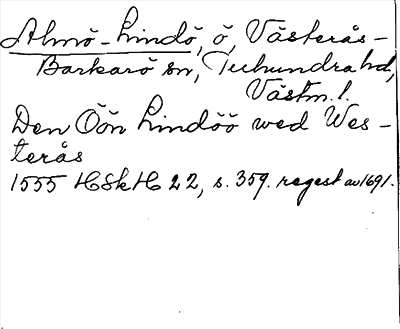 Almö-Lindö, ö, Västerås-
Barkarö sn, Tuhundra hd,
Västm. l.
Den Öön Lindöö wed Wes-
terås
1555 HSkH 22, s. 359. regest av 1691.